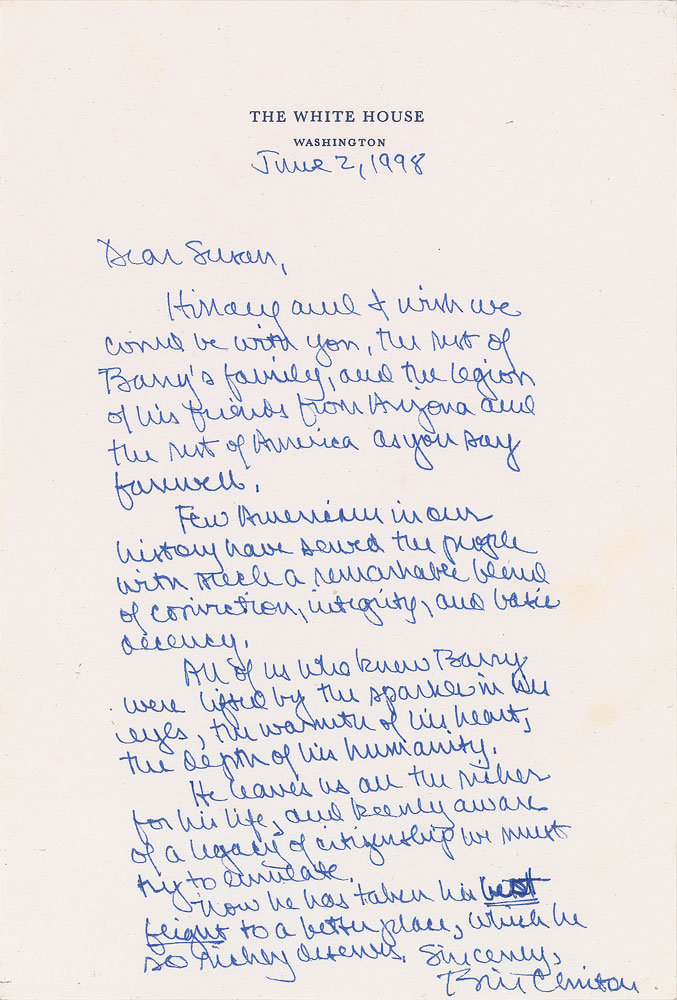 THE WHITE HOUSE
WASHINGTON
June 2, 1998
Dear Susan,
Hillary and I wish we
could be with you, the rest of
Barry's family, and the legion
of his friends from Arizona and
the rest of America as you say
farewell.
Few Americans in our
history have served the people
with such a remarkable blend
of conviction, integrity, and basic
decency.
All of us who knew Barry
were lifted by the sparkle in his
eyes, the warmth of his heart,
the depth of his humanity.
He leaves us all the richer
for his life, and keenly aware
of a legacy of citizenship we must
try to emulate.
Now he has taken his best
flight to a better place, which he
so richly deserves. Sincerely,
Bill Clinton